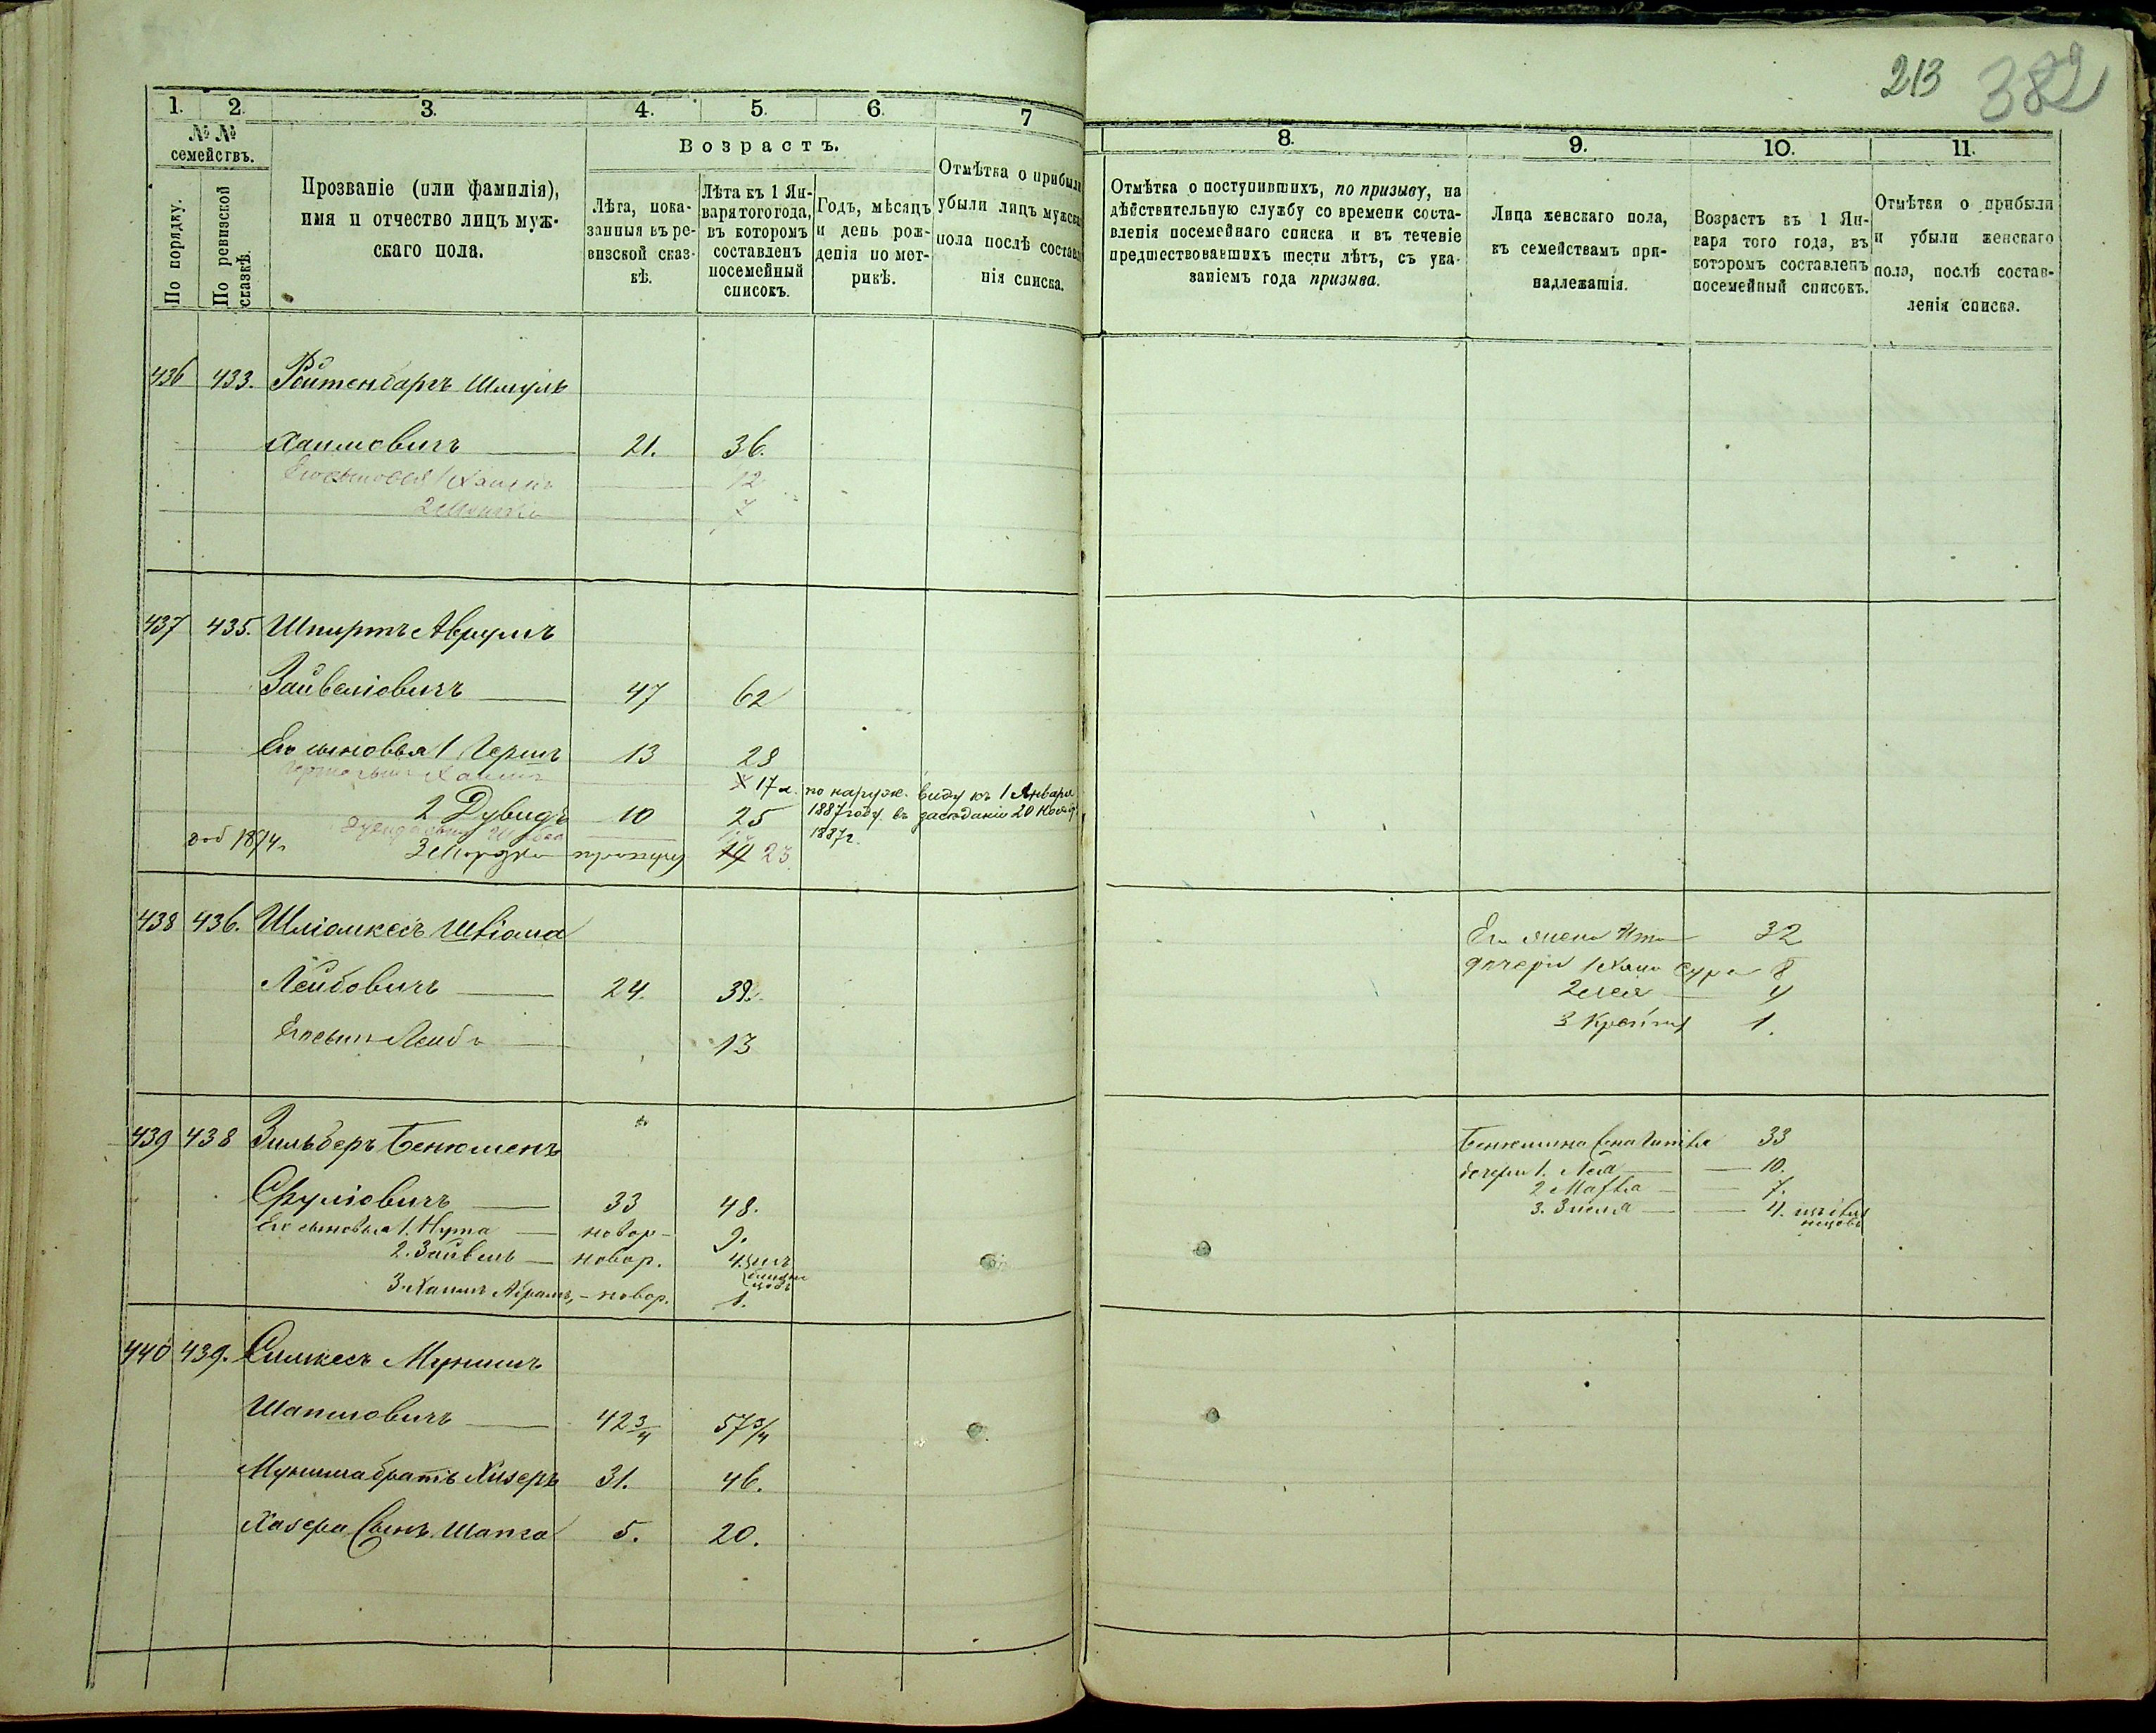 213 382
1. 2. 3. 4. 5. 6. 7
№ № семействъ.
По порядку.
По ревизской сказкѣ.
Прозваніе (или фамилія),
имя и отчество лицъ муж-
скаго пола.
Возрастъ.
Лѣта, пока-
занныя въ ре-
визской сказ-
кѣ.
Лѣта къ 1 Ян-
варя того года,
въ которомъ
составленъ
посемейный
списокъ.
Годъ, мѣсяцъ
и день рож-
денія по мет-
рикѣ.
Отмѣтка о прибыли
убыли лицъ мужска
пола послѣ составл
нія списка.
8. 9. 10. 11.
Отмѣтка о поступившихъ, по призыву, на
дѣйствительную службу со времени соста-
вленія посемейнаго списка и въ теченіе
предшествовавшихъ шести лѣтъ, съ ука-
заніемъ года призыва.
Лица женскаго пола,
къ семействамъ при-
надлежащія.
Возрастъ къ 1 Ян-
варя того года, въ
которомъ составленъ
посемейный списокъ.
Отмѣтки о прибыли
и убыли женскаго
пола, послѣ состав-
ленія списка.
436 433. Ройтенбаргъ Шмуль
Хаимовичъ 21. 36.
Его сыновья 1 Хаимъ 12
2 7
437 435. Шпиртъ Аврумъ
Зайвеліовичъ 47 62
Его сыновья 1 Гершъ 13 28
Хаимъ 17 л. по наружн. виду къ 1 Января
2 Дувидъ 10 25 1887 году въ засѣданіи 20 Нояб.
1887 г.
доб 1874 г. 3 Мордко пропущ 19 23
438 436. Шліомкесъ Шліома Его жена Ита 32
дочери 1 Хана Сура 8
Лейбовичъ 24. 39. 2 Лея 4
Его сынъ Лейба 13 3 Крейна 1.
439 438 Зильберъ Бенюменъ Бенюмина жена 33
дочери 1. Лея 10.
Сруліовичъ 33 48. 2 7.
Его сыновья 1. Нута новор- 9. 3. Злота 4. изъ близ
нецовъ
2. Зайвель новор. 4. изъ близне
цовъ
3. Хаимъ Абрамъ, новор. 1.
440 439. Симкесъ Мунишъ
Шапшовичъ 42 3/4 57 3/4
Муниша братъ Лизеръ 31. 46.
Лазера сынъ Шапса 5. 20.